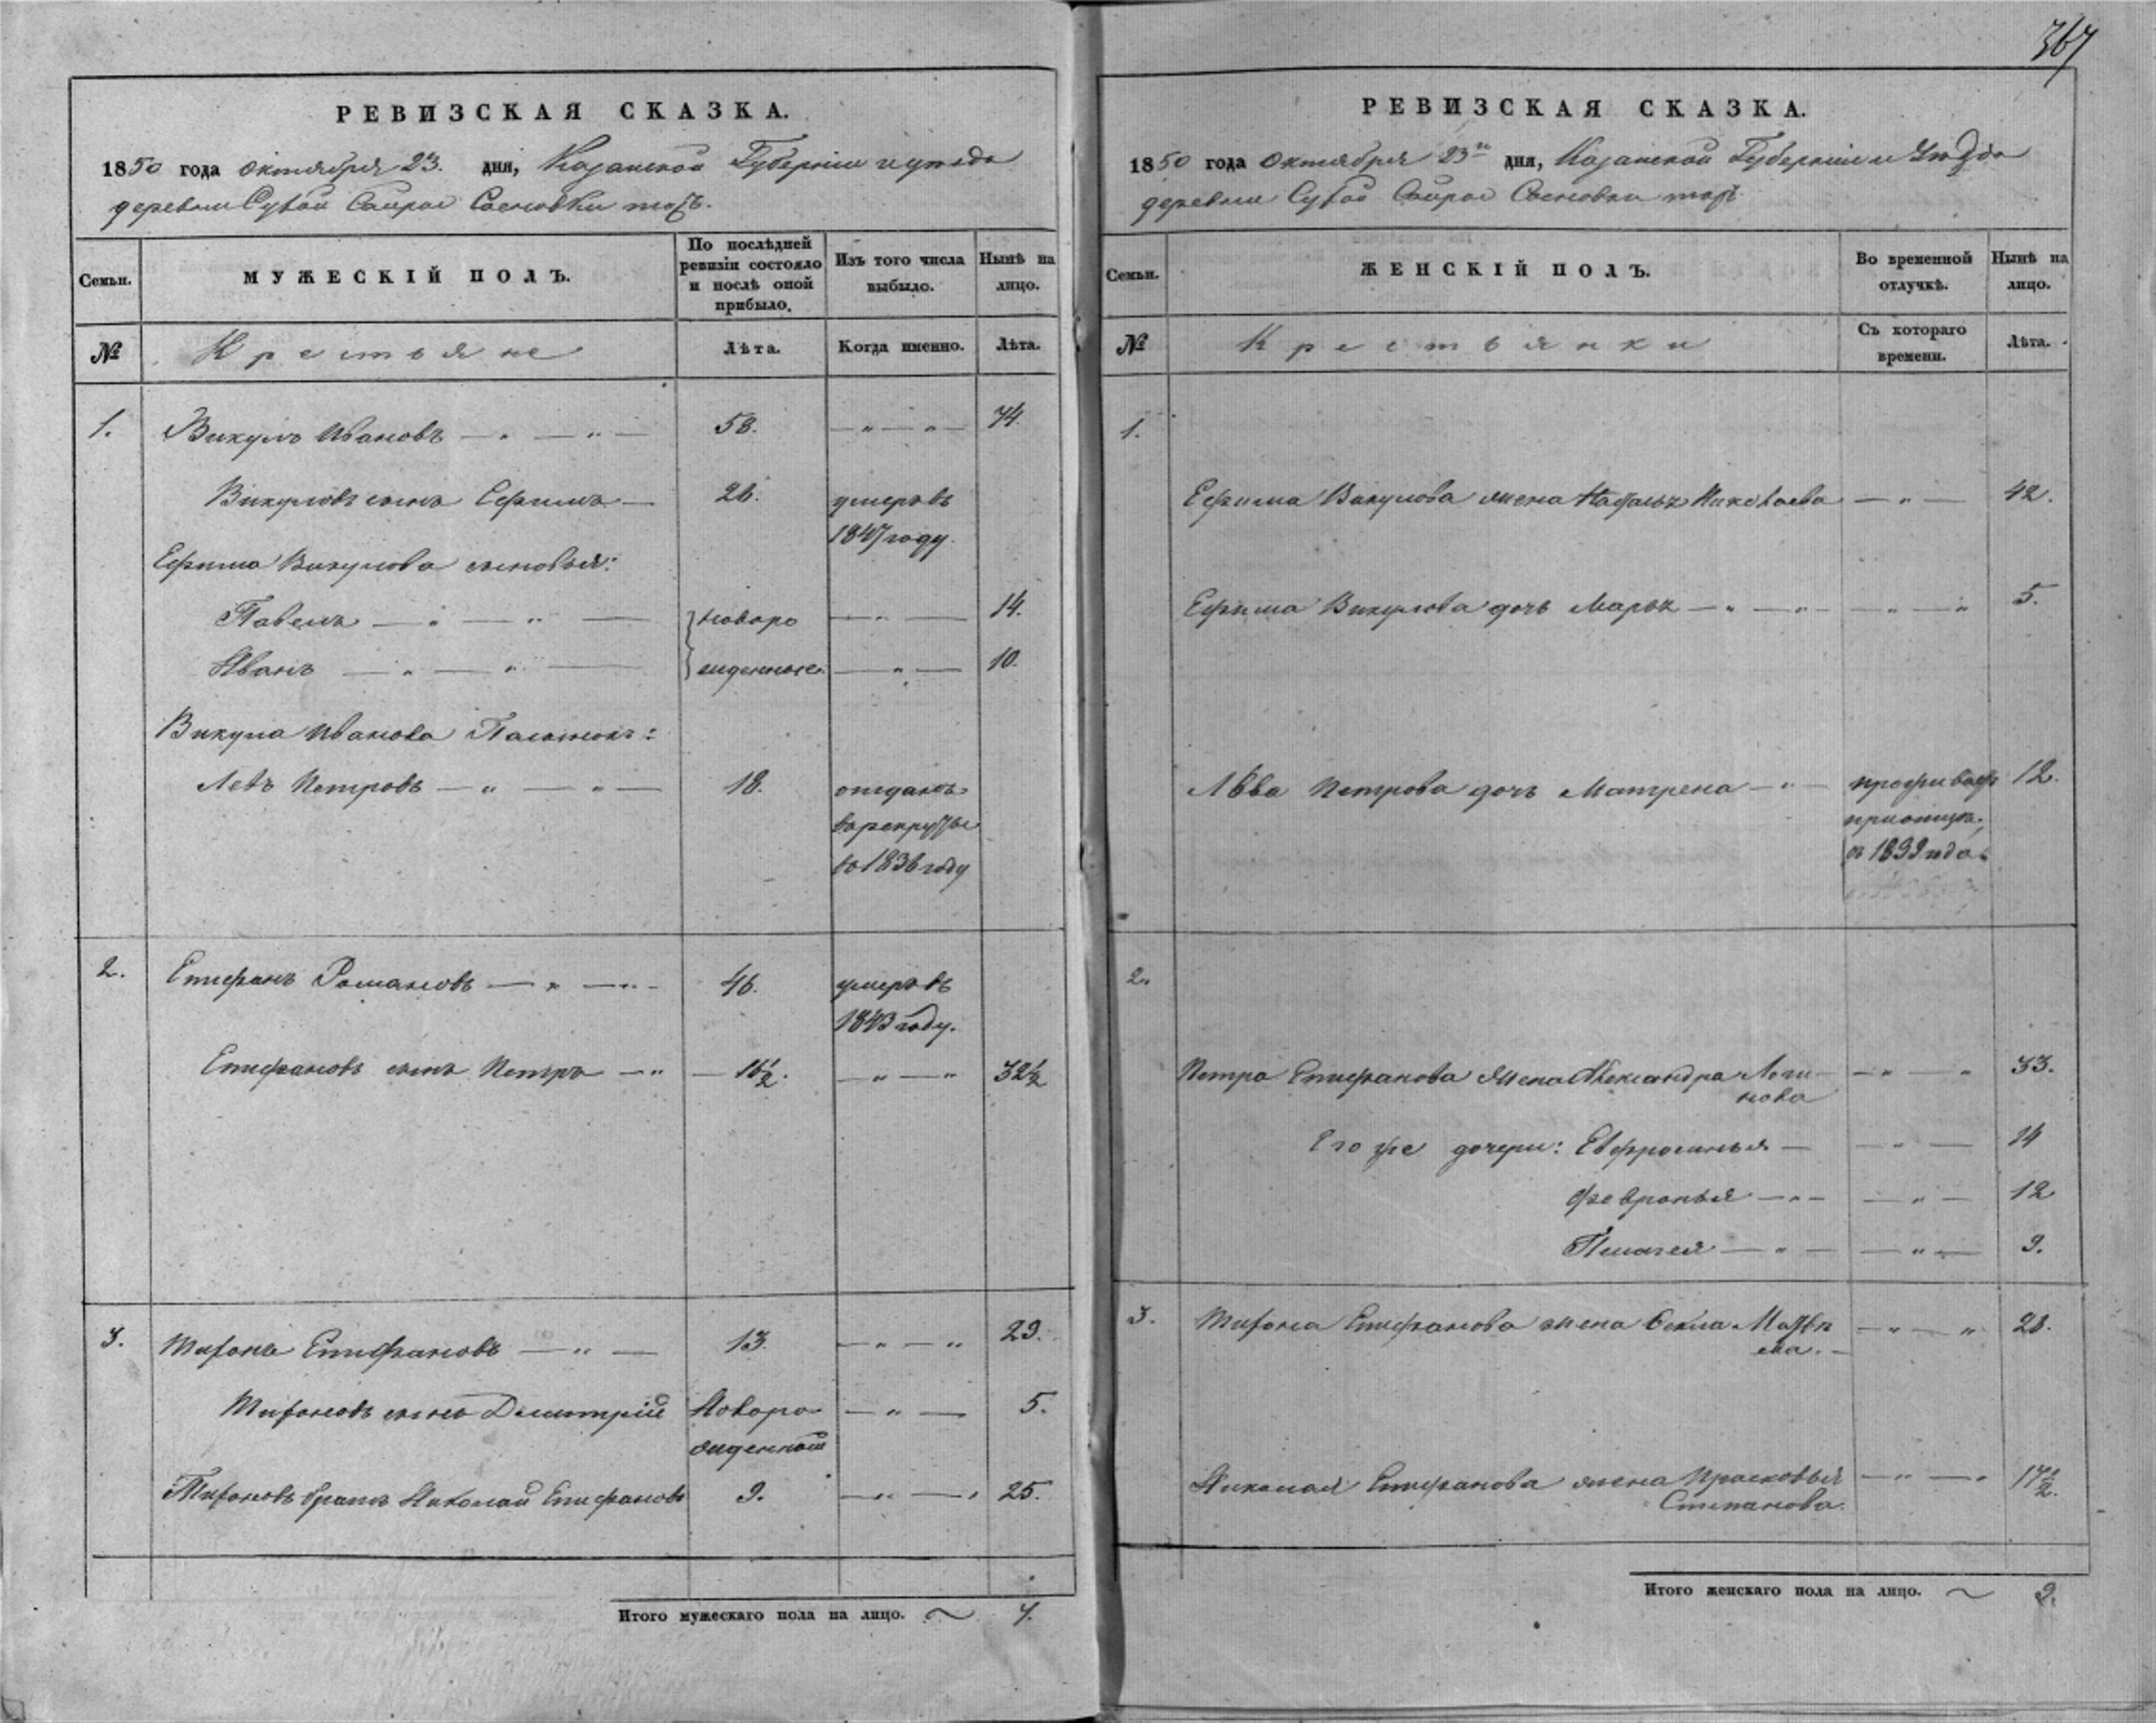 367
РЕВИЗСКАЯ СКАЗКА.
1850 года октября 23. дня, Казанской Губернiи и уѣзда
деревни Сухой Сосновки тожъ.
Семьи.
МУЖЕСКІЙ ПОЛЪ.
По послѣдней
ревизіи состояло
и послѣ оной
прибыло.
Изъ того числа
выбыло.
Нынѣ на
лицо.
№
Крестьяне
Лѣта.
Когда именно.
Лѣта.
1. Викулъ Ивановъ — „ — „ — 58. — „ — „ — 74.
Викуловъ сынъ Ефимъ — 26. умеръ въ
1847 году.
Ефима Викулова сыновья:
Павелъ — „ — „ — новоро — „ — 14.
Иванъ — „ — „ — жденные. — „ — 10.
Викула Иванова
Левъ Петровъ — „ — „ — 18. отданъ
въ рекруты
въ 1836 году
2. Епифанъ Романовъ — „ — „ — 46. умеръ въ
1843 году.
Епифановъ сынъ Петръ — „ — 16½. — „ — „ 32½
3. Тифонъ Епифановъ — „ — 13. — „ — „ 29.
Тифоновъ сынъ Дмитрій Новоро — „ — 5.
жденный
Тифоновъ братъ Николай Епифановъ 9. — „ — „ 25.
Итого мужескаго пола на лицо. 7.
РЕВИЗСКАЯ СКАЗКА.
1850 года Октября 23го дня, Казанской Губернiи и Уѣзда
деревни Сухой Сосновки тожъ
Семьи.
ЖЕНСКІЙ ПОЛЪ.
Во временной
отлучкѣ.
Нынѣ на
лицо.
№
Крестьянки
Съ котораго
времени.
Лѣта.
1.
Ефима Викулова жена Наталья Николаева — „ — 42.
Ефима Викулова дочь Марья — „ — „ — „ — „ 5.
Льва Петрова дочь Матрена — „ — 12.
съ 1839 года
2.
Петра Епифанова жена Александра Логи- — „ — „ 33.
нова
Его же дочери: Евфросинья — — „ — 14
Февронья — „ — — „ — 12
Пелагея — „ — — „ — 9.
3. Тифона Епифанова жена Ѳекла Матвѣ — „ — „ 28.
ева. —
Николая Епифанова жена Прасковья — „ — „ 17½.
Степанова.
Итого женскаго пола на лицо. 9.